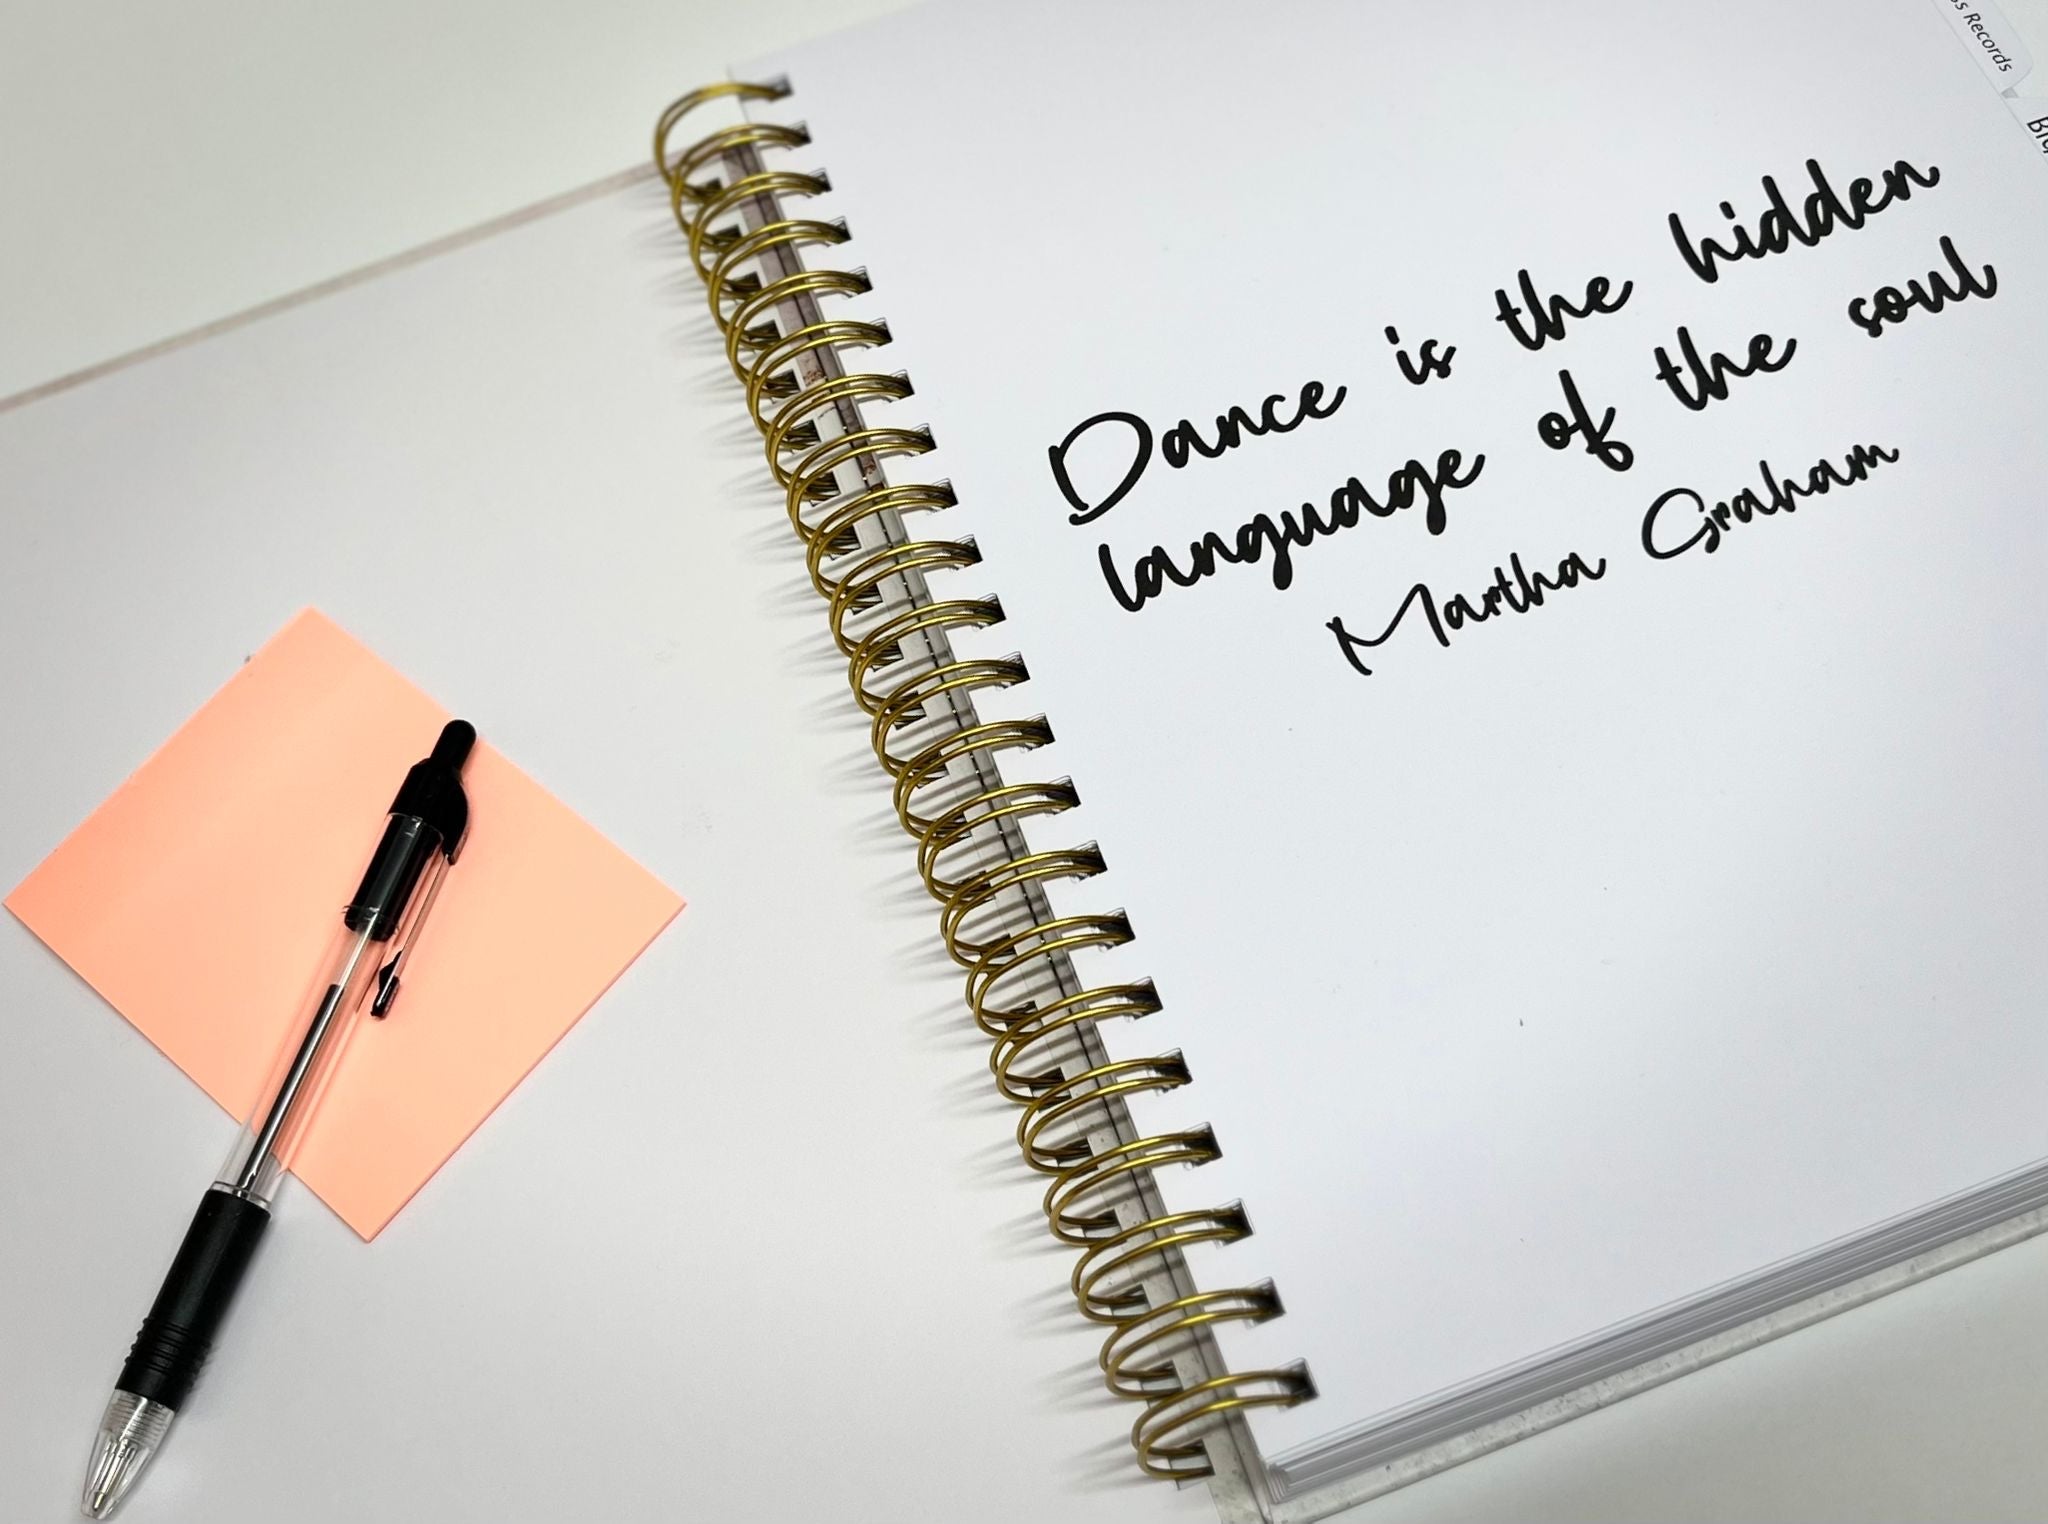 Records
Dance is the hidden
language of the soul
Martha Graham